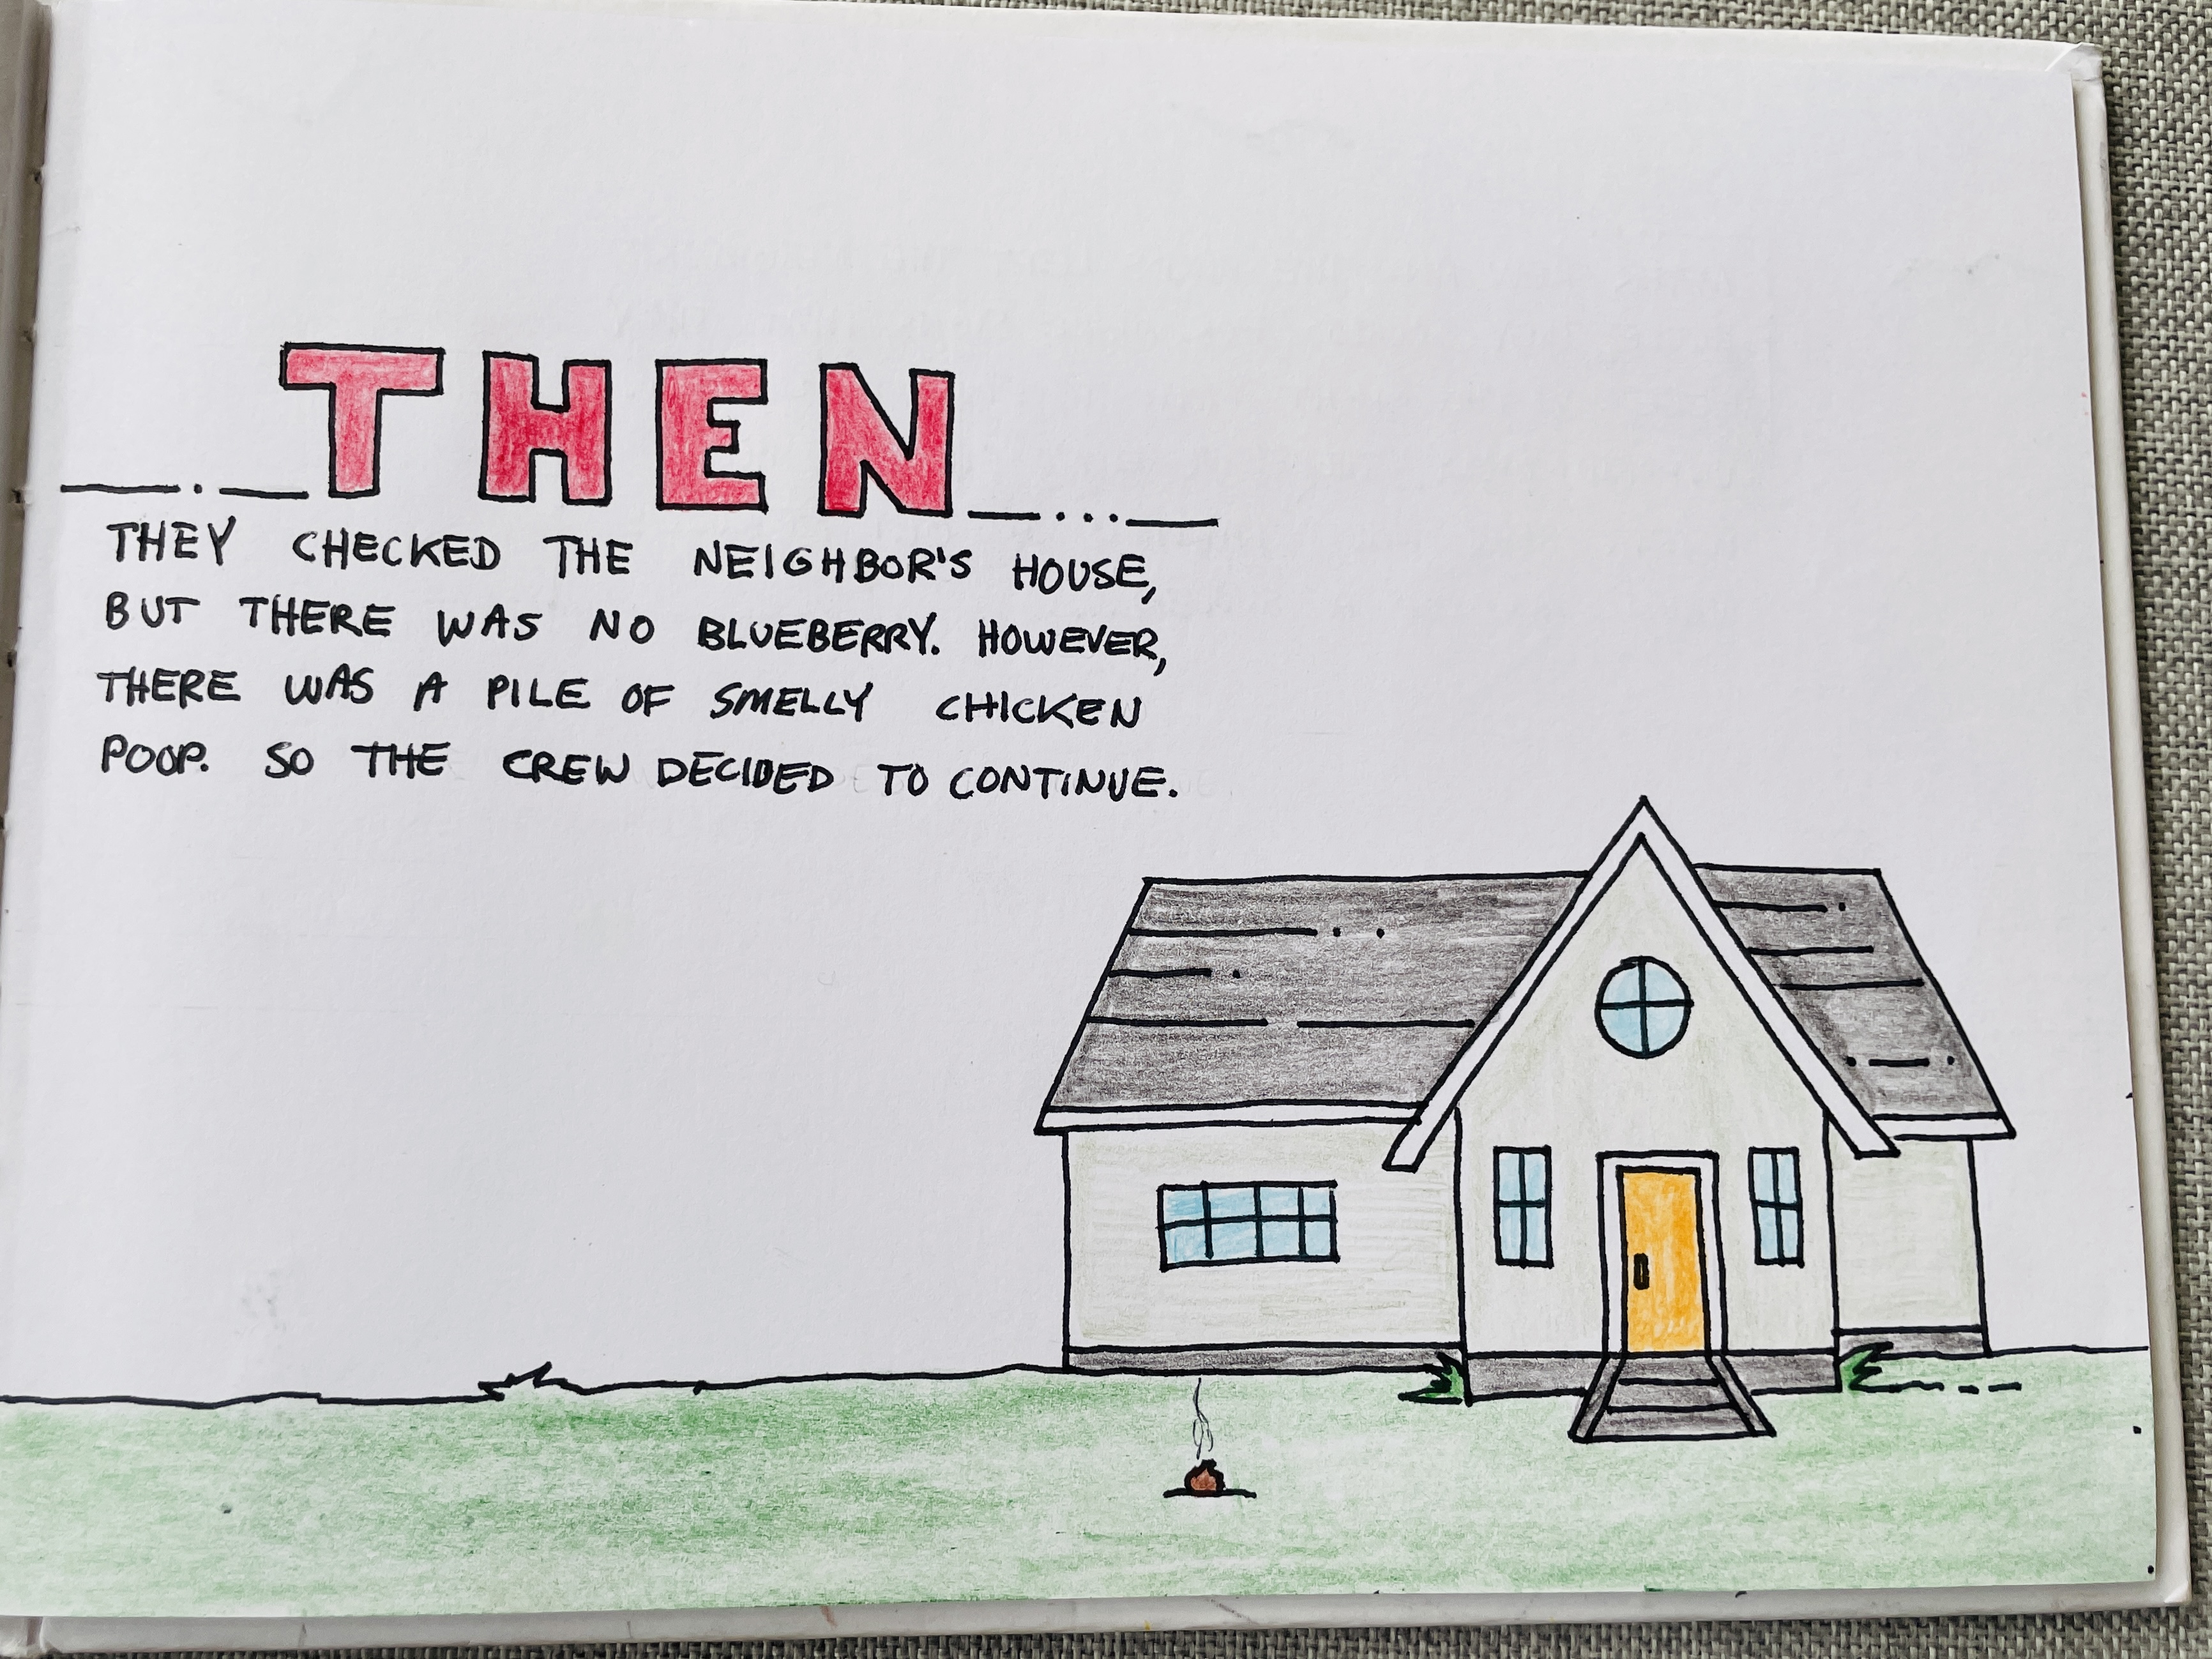 THEN
THEY CHECKED THE NEIGHBOR'S HOUSE,
BUT THERE WAS NO BLUEBERRY. HOWEVER,
THERE WAS A PILE OF SMELLY CHICKEN
POOP. SO THE CREW DECIDED TO CONTINUE.